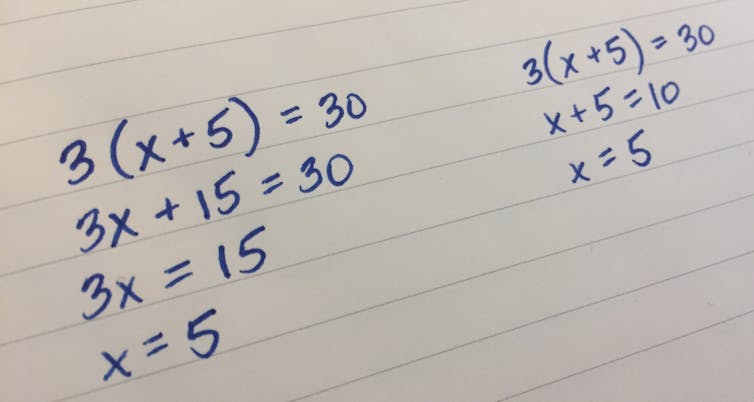 3(x+5) = 30
3x + 15 = 30
3x = 15
x = 5
3(x+5) = 30
x+5 = 10
x = 5